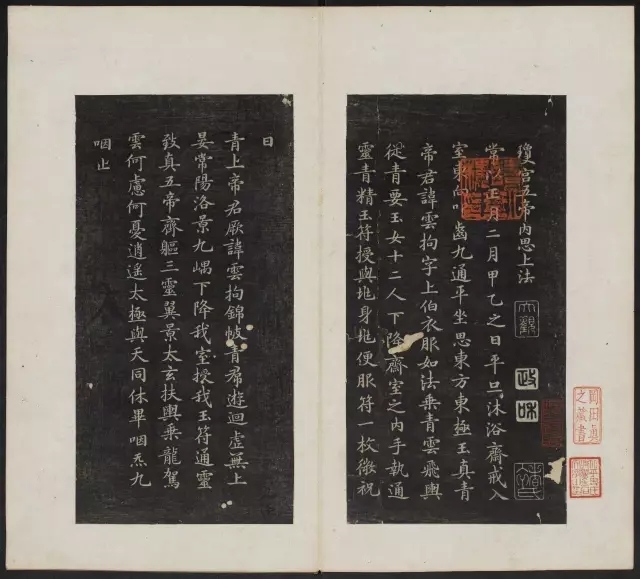 瓊宮五帝內思上法
常以正月二月甲乙之日平旦沐浴齋戒入
室東向齒九通平坐思東方東極玉真青
帝君諱雲拘字上伯衣服如法乘青雲飛輿
從青要玉女十二人下降齋室之內手執通
靈青精玉符授與兆身兆便服符一枚微祝
大觀
政和
岡田真
之蔵書
曰
青上帝君厥諱雲拘錦帔青帬遊迴虛無上
晏常陽洛景九嵎下降我室授我玉符通靈
致真五帝齊軀三靈翼景太玄扶輿乘龍駕
雲何慮何憂逍遙太極與天同休畢咽炁九
咽止